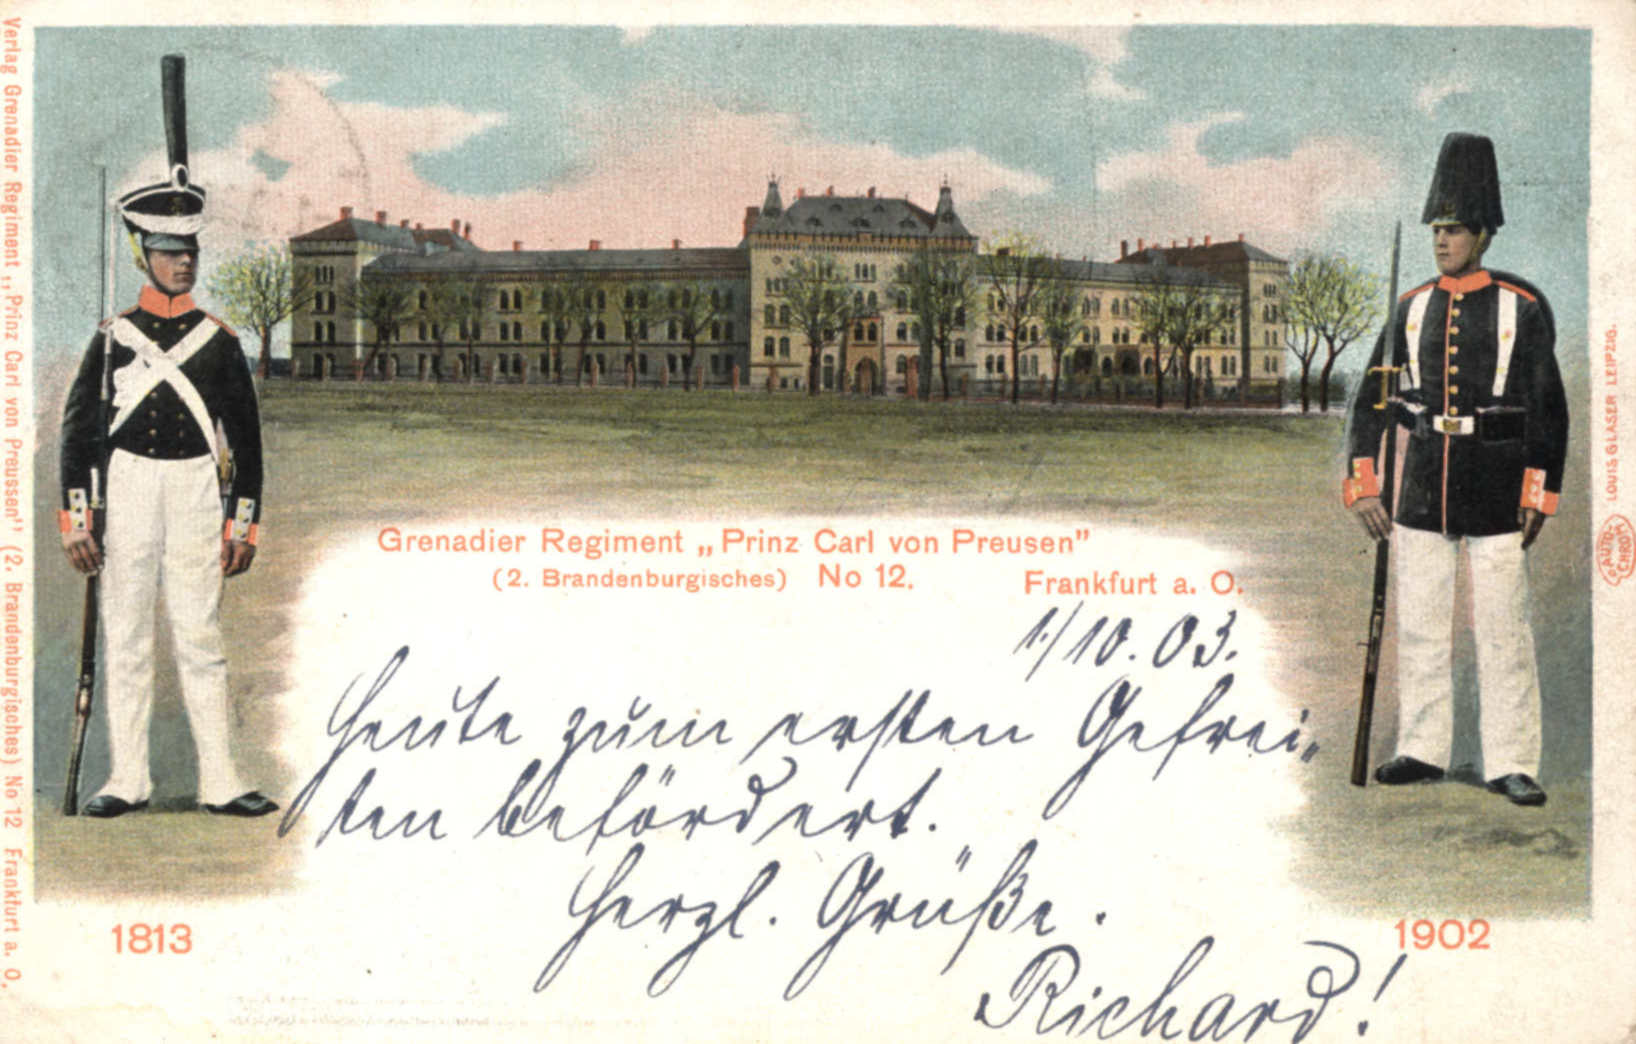 Verlag Grenadier Regiment „Prinz Carl von Preussen" (2. Brandenburgisches) No 12 Frankfurt a. O.
Grenadier Regiment „Prinz Carl von Preusen"
(2. Brandenburgisches) No 12. Frankfurt a. O.
1./10. 03.
Heute zum ersten Gefrei-
ten befördert.
Herzl. Grüße.
Richard!
1813
1902
LOUIS GLASER LEIPZIG.
AUTO-
CHROM